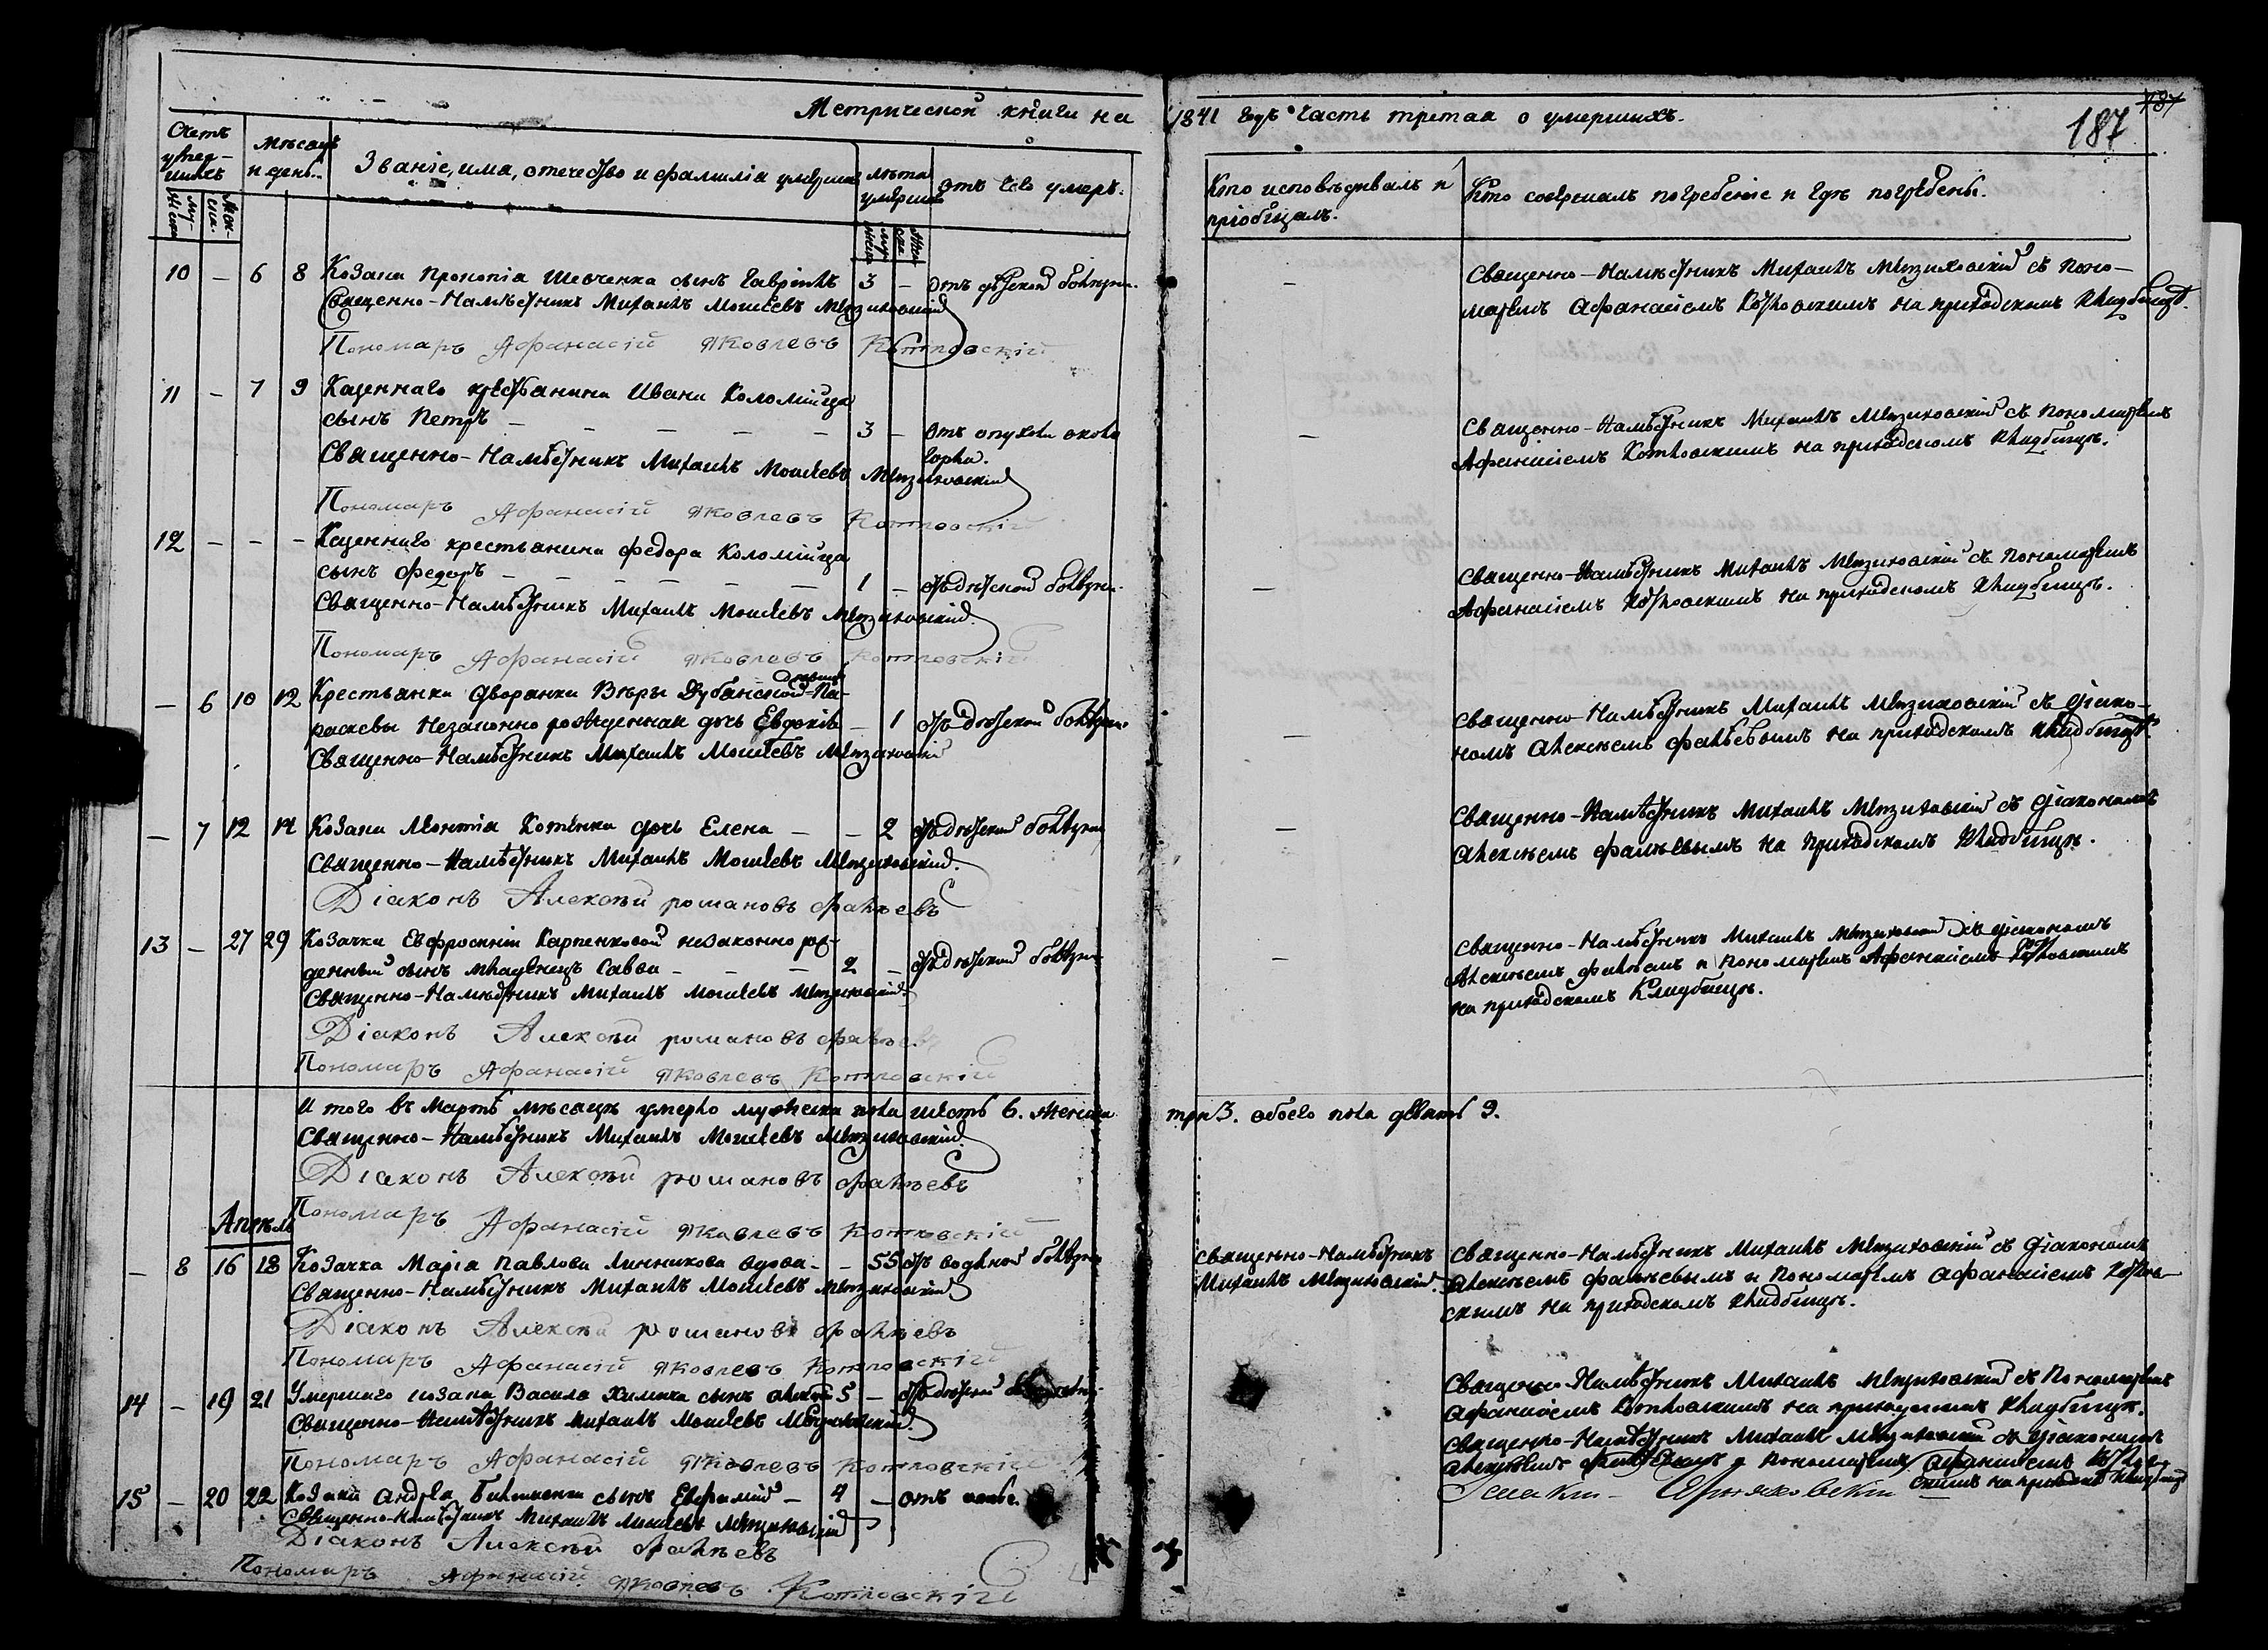 Метрической книги на 1841 годъ Часть третая о умершихъ.
187
Счетъ умершихъ
Мѣсяцъ и день.
Званіе, имя, отечество и фамилія умершихъ
Лѣта умершихъ
Отъ чего умеръ.
Кто исповѣдывалъ и пріобщалъ.
Кто совершалъ погребеніе и гдѣ погребены.
10 – 6 8 Козака Прокопія Шевченка сынъ Гавріилъ 3 – отъ дѣтской болѣзни.
Священно-Намѣстникъ Михаилъ Моисеевъ
Пономаръ Афанасій Яковлевъ Котловскій
– Священно-Намѣстникъ Михаилъ съ Поно-
маремъ Афанасіемъ Котловскимъ на приходскомъ кладбищѣ.
11 – 7 9 Казеннаго крестьянина Ивана Коломійца
сынъ Петръ – – – – – 3 – отъ опухоли около горла.
Священно-Намѣстникъ Михаилъ Моисеевъ
Пономаръ Афанасій Яковлевъ Котловскій
– Священно-Намѣстникъ Михаилъ съ Пономаремъ
Афанасіемъ Котловскимъ на приходскомъ кладбищѣ.
12 – – – Казеннаго крестьянина Федора Коломійца
сынъ Федоръ – – – – – 1 – отъ дѣтской болѣзни.
Священно-Намѣстникъ Михаилъ Моисеевъ
Пономаръ Афанасій Яковлевъ Котловскій
– Священно-Намѣстникъ Михаилъ съ Пономаремъ
Афанасіемъ Котловскимъ на приходскомъ кладбищѣ.
– 6 10 12 Крестьянки дворянки Вѣры Дубянской Па-
раскевы незаконно рожденная дочь Евдокія – 1 отъ дѣтской болѣзни.
Священно-Намѣстникъ Михаилъ Моисеевъ
– Священно-Намѣстникъ Михаилъ съ діако-
номъ Алексѣемъ Фалѣевымъ на приходскомъ кладбищѣ.
– 7 12 14 Козака Леонтія Котенка дочь Елена – – 2 отъ дѣтской болѣзни
Священно-Намѣстникъ Михаилъ Моисеевъ
Діаконъ Алексѣй романовъ Фалѣевъ
– Священно-Намѣстникъ Михаилъ съ діакономъ
Алексѣемъ Фалѣевымъ на Приходскомъ кладбищѣ.
13 – 27 29 Козачки Евфросиніи Карпенковой незаконно рож-
денный сынъ младенецъ Савва – – – 2 – отъ дѣтской болѣзни
Священно-Намѣстникъ Михаилъ Моисеевъ
Діаконъ Алексѣй романовъ Фалѣевъ
Пономаръ Афанасій Яковлевъ Котловскій
– Священно-Намѣстникъ Михаилъ съ діакономъ
Алексѣемъ и Пономаремъ Афанасіемъ Котловскимъ
на приходскомъ Кладбищѣ.
И того въ Мартѣ мѣсяцѣ умерло мужеска пола шесть 6. женска три 3. обоего пола девять 9.
Священно-Намѣстникъ Михаилъ Моисеевъ
Діаконъ Алексѣй романовъ Фалѣевъ
Пономаръ Афанасій Яковлевъ Котловскій
– 8 16 18 Козачка Марія Павлова Линникова вдова – – 55 отъ водяной болѣзни
Священно-Намѣстникъ Михаилъ Моисеевъ
Діаконъ Алексѣй романовъ Фалѣевъ
Пономаръ Афанасій Яковлевъ Котловскій
Священно-Намѣстникъ
Михаилъ
Священно-Намѣстникъ Михаилъ съ Діакономъ
Алексѣемъ Фалѣевымъ и Пономаремъ Афанасіемъ Котлов-
скимъ на приходскомъ кладбищѣ.
14 – 19 21 Умершаго козака Василя сынъ 5 – отъ дѣтской
Священно-Намѣстникъ Михаилъ Моисеевъ
Пономаръ Афанасій Яковлевъ Котловскій
Священно-Намѣстникъ Михаилъ съ Пономаремъ
Афанасіемъ Котловскимъ на приходскомъ кладбищѣ.
15 – 20 22 Козака Андрея сынъ Евфимій – 4 – отъ
Священно-Намѣстникъ Михаилъ Моисеевъ
Діаконъ Алексѣй Фалѣевъ
Пономаръ Афанасій Яковлевъ Котловскій
Священно-Намѣстникъ Михаилъ съ діакономъ
Алексѣемъ и Пономаремъ Афанасіемъ Котлов-
скимъ на приходскомъ кладбищѣ